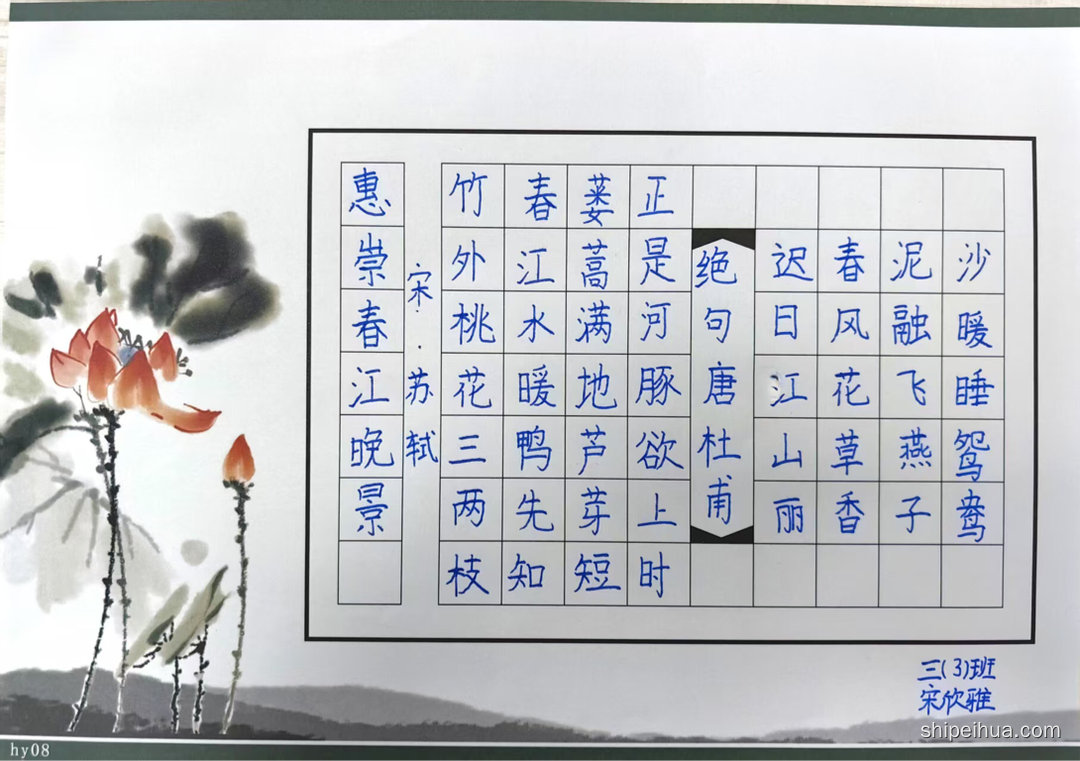 惠崇春江晚景
宋·苏轼
竹外桃花三两枝
春江水暖鸭先知
蒌蒿满地芦芽短
正是河豚欲上时
绝句唐杜甫
迟日江山丽
春风花草香
泥融飞燕子
沙暖睡鸳鸯
三(3)班
宋欣雅
shipeihua.com
hy08